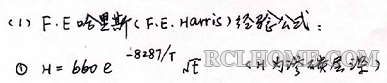 (1) F.E哈里斯(F.E.Harris)经验公式:
① H=660e^{-8287/T} √t (H为渗碳层深
RCLHOME.COM